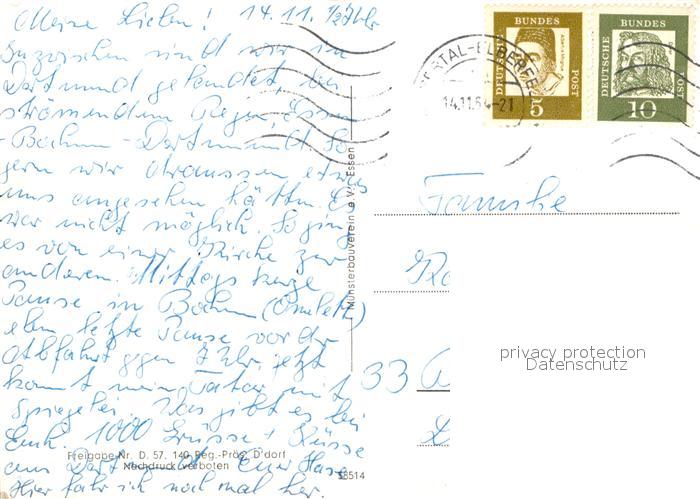 Meine Lieben! 14.11. 1/2 7 Uhr
Inzwischen sind wir in
Dortmund gelandet, bei
strömendem Regen, Essen
-Bochum-Dortmund. So
gern wir draussen etwas
uns angesehen hätten. Es
war nicht möglich. So ging
es von einer Kirche zur
anderen. Mittags kurze
Pause in Bochum (Omlett)
eben letzte Pause vor der
Abfahrt gegen 7 Uhr, jetzt
kommt mein Tatar mit
Spiegelei. Was gibt es bei
Euch. 1000 Grüsse + Küsse
aus Dortmund Euer
Hier fahr ich noch mal her.
Freigabe-Nr. D. 57. 140 Reg.-Präs. D'dorf
Nachdruck verboten
58514
Münsterbauverein e.V. Essen
DEUTSCHE BUNDES POST
5
DEUTSCHE BUNDES POST
10
14.11.64-21
Familie
33
privacy protection
Datenschutz